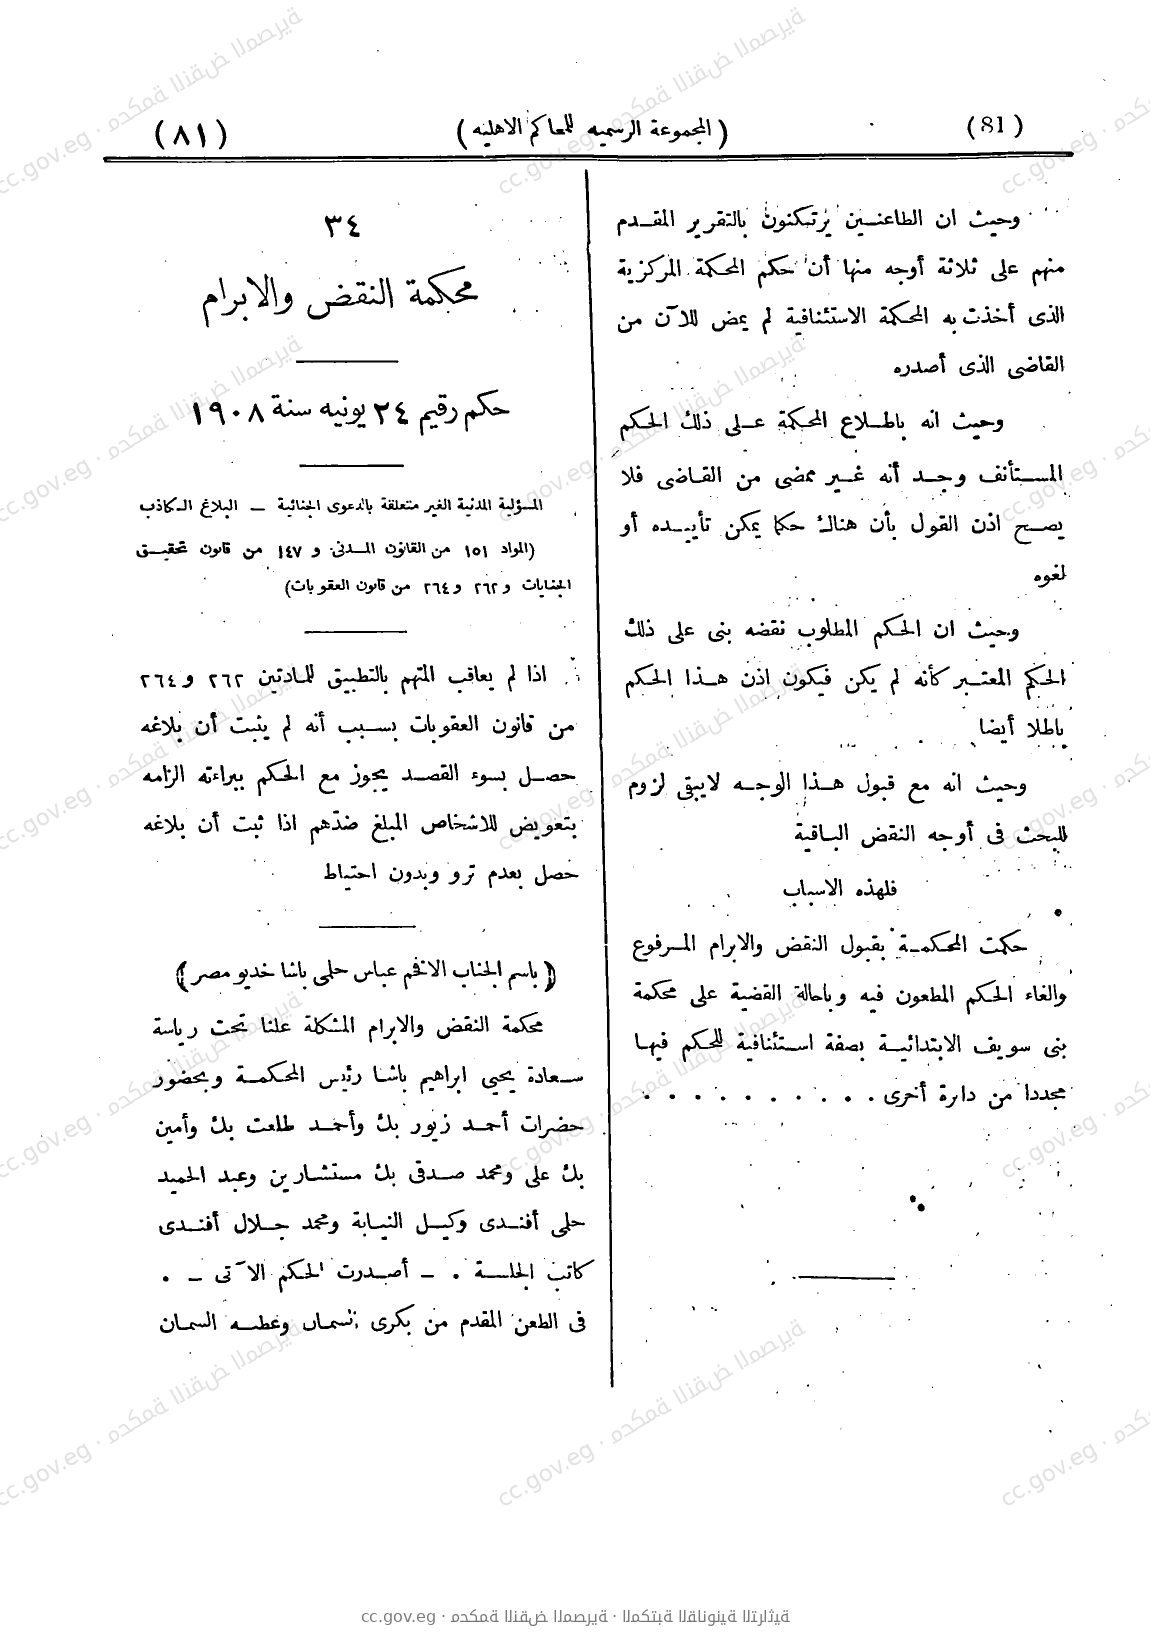 (81)
(المجموعة الرسميه للمحاكم الاهليه)
(٨١)
وحيث ان الطاعنين يرتكنون بالتقرير المقدم
منهم على ثلاثة أوجه منها أن حكم المحكمة المركزية
الذى أخذت به المحكمة الاستئنافية لم يمض للآن من
القاضى الذى أصدره
وحيث انه باطلاع المحكمة على ذلك الحكم
المستأنف وجد أنه غير ممضى من القاضى فلا
يصح اذن القول بأن هناك حكما يمكن تأييده أو
لغوه
وحيث ان الحكم المطلوب نقضه بنى على ذلك
الحكم المعتبر كأنه لم يكن فيكون اذن هذا الحكم
باطلا أيضا
وحيث انه مع قبول هذا الوجه لايبقى لزوم
للبحث فى أوجه النقض الباقية
فلهذه الاسباب
حكمت المحكمة بقبول النقض والابرام المرفوع
والغاء الحكم المطعون فيه وباحالة القضية على محكمة
بنى سويف الابتدائية بصفة استئنافية للحكم فيها
مجددا من دارة أخرى . . . . . . . . . .
٣٤
محكمة النقض والابرام
حكم رقيم ٢٤ يونيه سنة ١٩٠٨
المسؤلية المدنية الغير متعلقة بالدعوى الجنائية — البلاغ الكاذب
(المواد ١٥١ من القانون المدنى و ١٤٧ من قانون تحقيق
الجنايات و ٢٦٢ و ٢٦٤ من قانون العقوبات)
اذا لم يعاقب المتهم بالتطبيق للمادتين ٢٦٢ و ٢٦٤
من قانون العقوبات بسبب أنه لم يثبت أن بلاغه
حصل بسوء القصد يجوز مع الحكم ببراءته الزامه
بتعويض للاشخاص المبلغ ضدهم اذا ثبت أن بلاغه
حصل بعدم ترو وبدون احتياط
(باسم الجناب الافخم عباس حلمى باشا خديو مصر)
محكمة النقض والابرام المشكلة علنا تحت رياسة
سعادة يحيى ابراهيم باشا رئيس المحكمة وبحضور
حضرات أحمد زيور بك وأحمد طلعت بك وأمين
بك على ومحمد صدقى بك مستشارين وعبد الحميد
حلمى أفندى وكيل النيابة ومحمد جلال أفندى
كاتب الجلسة . — أصدرت الحكم الآتى — .
فى الطعن المقدم من بكرى السمان وعطيه السمان
cc.gov.eg · محكمة النقض المصرية · المكتبة القانونية التراثية